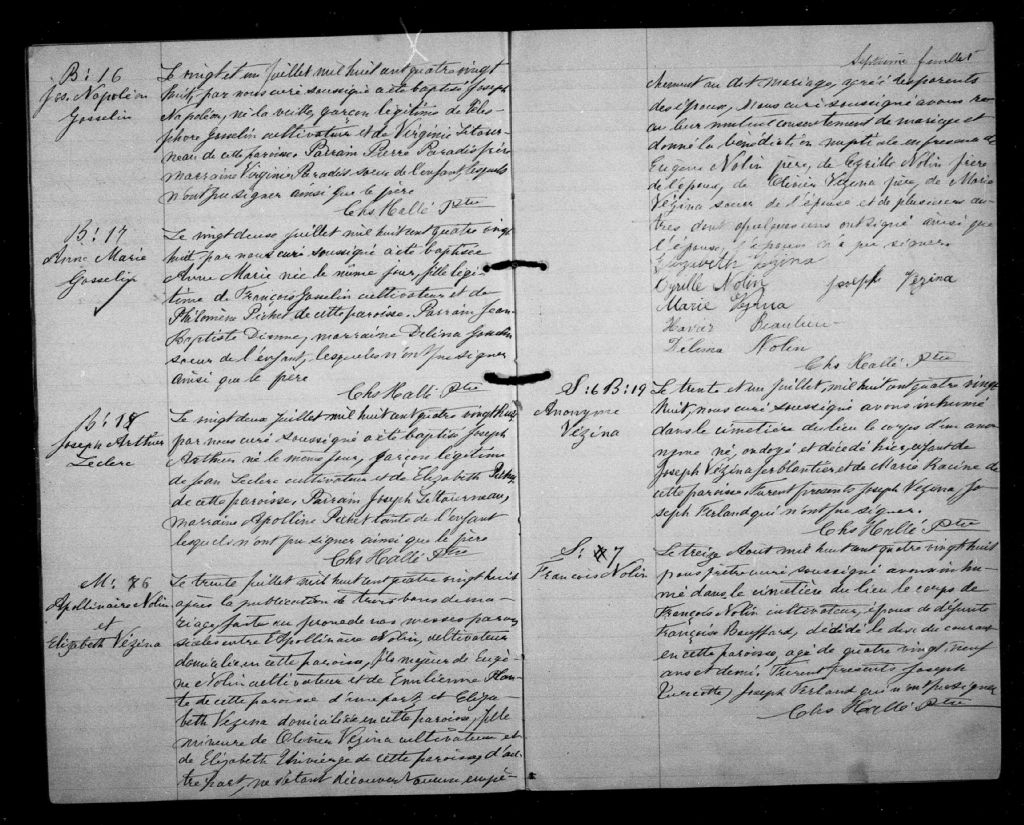 B: 16
Jos. Napoléon
Gosselin
Le vingt et un Juillet mil huit cent quatre vingt
huit, par nous curé soussigné a été baptisé Joseph
Napoléon, né la veille, garçon légitime de Téles-
phore Gosselin cultivateur et de Virginie Létour-
neau de cette paroisse Parrain Pierre Paradis frère
marraine Virginie Paradis soeur de l'enfant, lesquels
n'ont pu signer ainsi que le père
Chs Hallé Ptre
B: 17
Anne Marie
Gosselin
Le vingt deux Juillet mil huit cent quatre vingt
huit par nous curé soussigné a été baptisée
Anne Marie née le même jour, fille légi-
time de François Gosselin cultivateur et de
Philomène Pichet de cette paroisse. Parrain Jean
Baptiste Dionne, marraine Délina Gosselin
soeur de l'enfant, lesquels n'ont pu signer
ainsi que le père
Chs Hallé Ptre
B: 18
Joseph Arthur
Leclerc
Le vingt deux Juillet mil huit cent quatre vingt huit
par nous curé soussigné a été baptisé Joseph
Arthur né le même jour, garçon légitime
de Jean Leclerc cultivateur et de Elizabeth Pichet
de cette paroisse, Parrain Joseph Létourneau,
marraine Apolline Pichet tante de l'enfant
lesquels n'ont pu signer ainsi que le père
Chs Hallé Ptre
M: 6
Apollinaire Nolin
et
Elizabeth Vézina
Le trente Juillet mil huit cent quatre vingt huit
après la publication de trois bans de ma-
riage, faite au prone de nos messes parois-
siales entre Apollinaire Nolin, cultivateur
domicilié en cette paroisse, fils majeur de Eugè-
ne Nolin cultivateur et de Emilienne Plan-
te de cette paroisse d'une part et Eliza-
beth Vézina domiciliée en cette paroisse, fille
mineure de Olivier Vézina cultivateur et
de Elizabeth de cette paroisse, d'au-
tre part, ne s'étant découvert aucun empê-
Septième feuillet
chement au dit mariage, agréé des parents
des époux, Nous curé soussigné avons re-
çu leur mutuel consentement de mariage et
donné la bénédiction nuptiale en présence de
Eugène Nolin père, de Cyrille Nolin frère
de l'époux, de Olivier Vézina père, de Marie
Vézina soeur de l'épouse et de plusieurs au-
tres dont quelques uns ont signé ainsi que
l'épouse, l'époux n'a pu signer.
Elizabeth Vézina
Cyrille Nolin Joseph Vézina
Marie Vézina
Xavier Beaulieu
Délima Nolin
Chs Hallé Ptre
S: 6 B: 19
Anonyme
Vézina
Le trente et un Juillet, mil huit cent quatre vingt
huit, nous curé soussigné avons inhumé
dans le cimetière du lieu le corps d'un ano-
nyme né, ondoyé et décédé hier, enfant de
Joseph Vézina ferblantier et de Marie Racine de
cette paroisse. Furent présents Joseph Vézina, Jo-
seph Ferland qui n'ont pu signer.
Chs Hallé Ptre
S: 7
François Nolin
Le treize Aout mil huit cent quatre vingt huit
nous prêtre curé soussigné avons inhu-
mé dans le cimetière du lieu le corps de
François Nolin cultivateur, époux de défunte
Françoise Bouffard, décédé le dix du courant
en cette paroisse, agé de quatre vingt neuf
ans et demi. Furent présents Joseph
Turcotte, Joseph Ferland qui n'ont pu signer
Chs Hallé Ptre